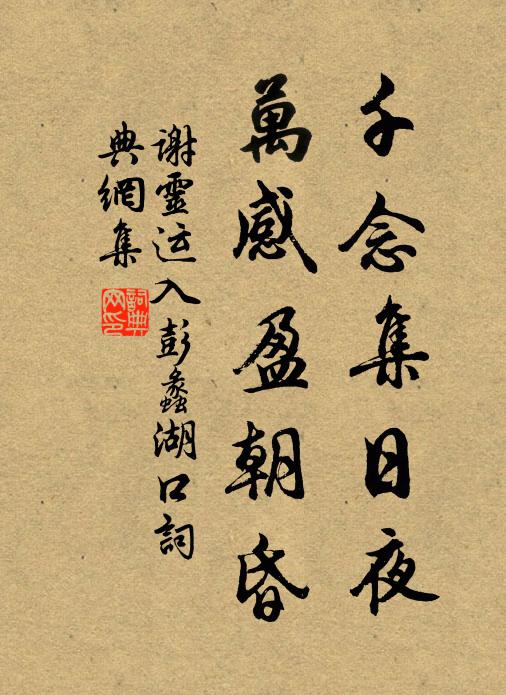 千念集日夜
萬感盈朝昏
謝靈运入彭蠡湖口詞
典網集
詞典
网印